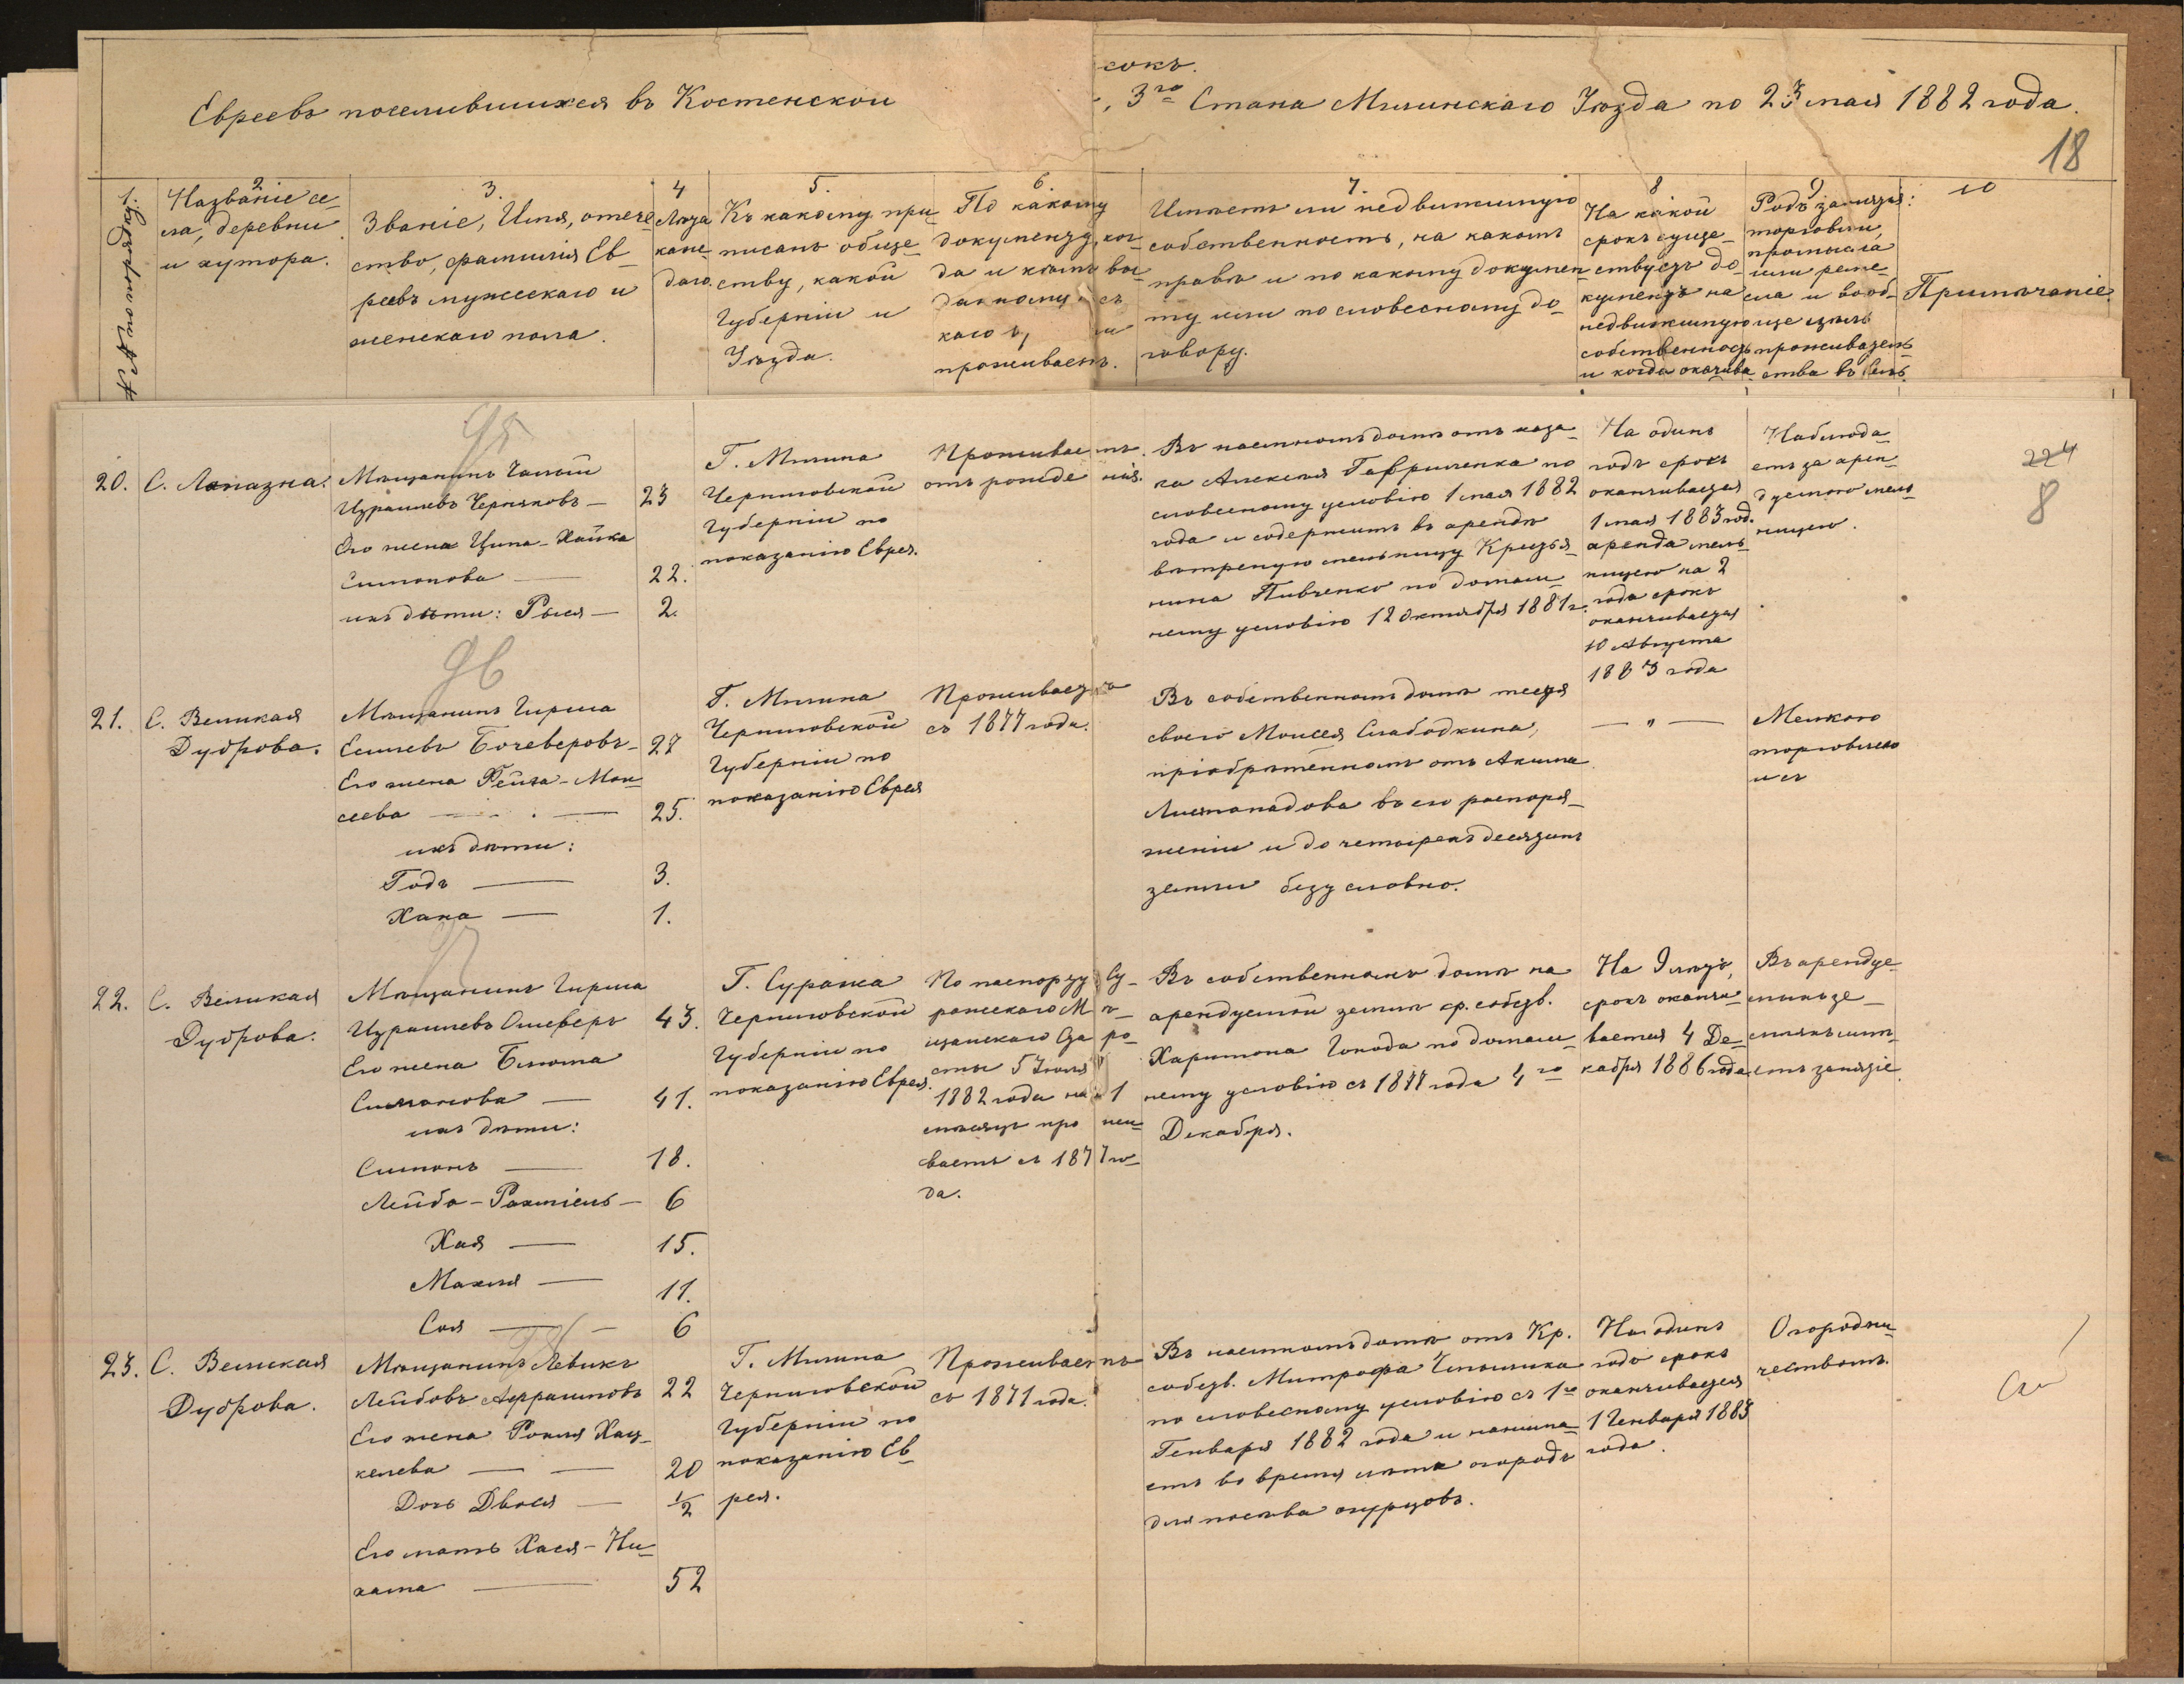 сокъ.
Евреевъ поселившихся въ Костенской
, 3го Стана Мглинскаго Уѣзда по 23 мая 1882 года.
18
1.
№ по порядку.
2.
Названіе се-
ла, деревни
и хутора.
3.
Званіе, Имя, отече-
ство, фамилія Ев-
реевъ мужескаго и
женскаго пола.
4
Лѣта
каж-
даго.
5.
Къ какому при-
писанъ обще-
ству, какой
Губерніи и
Уѣзда.
6.
По какому
документу, ког-
да и кѣмъ вы-
данному
каго
проживаетъ.
7.
Имѣетъ ли недвижимую
собственность, на какомъ
правѣ и по какому докумен-
ту или по словесному до-
говору.
8
На какой
срокъ суще-
ствуетъ до-
кументъ на
недвижимую
собственность
и когда оканчива
9
Родъ занятія:
торговли,
промысла
или реме-
сла и вооб-
ще цѣль
проживатель-
ства въ селѣ.
10
Примѣчаніе.
95
20.
С. Лопазна.
Мѣщанинъ
Израилевъ Черняковъ — 23
Его жена Ципа-Хайка
Симонова — 22.
ихъ дѣти: Рыся — 2.
Г. Мглина
Черниговской
Губерніи по
показанію Еврея.
Проживаетъ
отъ рожденія.
Въ наемномъ домѣ отъ каза-
ка Алексѣя Гавриленка по
словесному условію 1 мая 1882
года и содержитъ въ арендѣ
вѣтреную мельницу Крестья-
нина Пивченко по домаш-
нему условію 12 Октября 1881 г.
На одинъ
годъ срокъ
оканчивается
1 мая 1883 год.
аренда мель-
ницею на 2
года срокъ
оканчивается
10 Августа
1883 года
Наблюда-
етъ за арен-
дуемою мель-
ницею.
224
8
96
21.
С. Великая
Дуброва.
Мѣщанинъ Гирша
Еселевъ Бочеверовъ — 27
Его жена Фейга-Мои-
сеева — 25.
ихъ дѣти:
Годъ — 3.
Хана — 1.
Г. Мглина
Черниговской
Губерніи по
показанію Еврея
Проживаетъ
съ 1877 года.
Въ собственномъ домѣ тестя
своего Моисея Слабодкина,
пріобрѣтенномъ отъ Акима
Листопадова въ его распоря-
женіи и до четырехъ десятинъ
земли безусловно.
— " —
Мелкою
торговлею
97
22.
С. Великая
Дуброва.
Мѣщанинъ Гирша
Израилевъ Ошеверъ 43.
Его жена Блюма
Симонова — 41.
ихъ дѣти:
Симонъ — 18.
Лейба-Рахміель — 6
Хая — 15.
Махля — 11.
Соя — 6
Г. Суража
Черниговской
Губерніи по
показанію Еврея.
По паспорту Су-
ражскаго Мѣ-
щанскаго Старо-
сты 5 Іюля
1882 года на 1
мѣсяцъ прожи-
ваетъ съ 1877 го-
да.
Въ собственномъ домѣ на
арендуемой землѣ кр. собств.
Харитона Гокода по домаш-
нему условію съ 1877 года 4го
Декабря.
На 9 лѣтъ,
срокъ оканчи-
вается 4 Де-
кабря 1886 года
Въ арендуе-
мыхъ зе-
мляхъ имѣ-
етъ занятіе.
98
23.
С. Великая
Дуброва.
Мѣщанинъ Левикъ
Лейбовъ Афраимовъ 22
Его жена Рохля Хац-
келева — 20
Дочь Двося — 1/2
Его мать Хася-Не-
хама — 52
Г. Мглина
Черниговской
Губерніи по
показанію Ев-
рея.
Проживаетъ
съ 1871 года.
Въ наемномъ домѣ отъ Кр.
собств. Митрофа
по словесному условію съ 1го
Генваря 1882 года и нанима-
етъ во время лѣта огородъ
для посѣва огурцовъ.
На одинъ
годъ срокъ
оканчивается
1 Генваря 1883
года.
Огородни-
чествомъ.